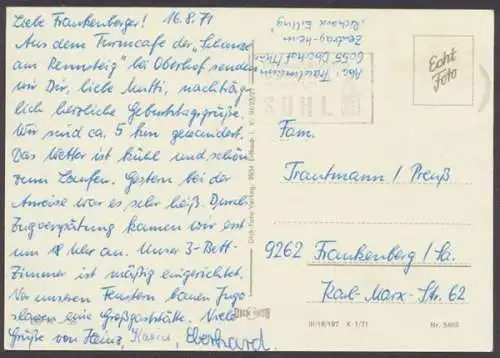 Liebe Frankenberger! 16.8.71
Aus dem Turmcafe der "Schanze
am Rennsteig" bei Oberhof senden
wir Dir, liebe Mutti, nachträg-
lich herzliche Geburtstagsgrüße.
Wir sind ca. 5 km gewandert.
Das Wetter ist kühl und schön
zum Laufen. Gestern bei der
Anreise war es sehr heiß. Durch
Zugverspätung kamen wir erst
um Uhr an. Unser 3-Bett-
Zimmer ist mäßig eingerichtet.
Vor unseren Fenstern bauen Jugo-
slawen eine Großgaststätte. Viele
Grüße von Heinz, Eberhard.
Abs.: Trautmann
6055 Oberhof/Thür.
"Richard Eyling"
SUHL
Echt
Foto
Fam.
Trautmann / Preuß
9262 Frankenberg / Sa.
Karl-Marx-Str. 62
III/18/197 K 1/71 Nr. 5465